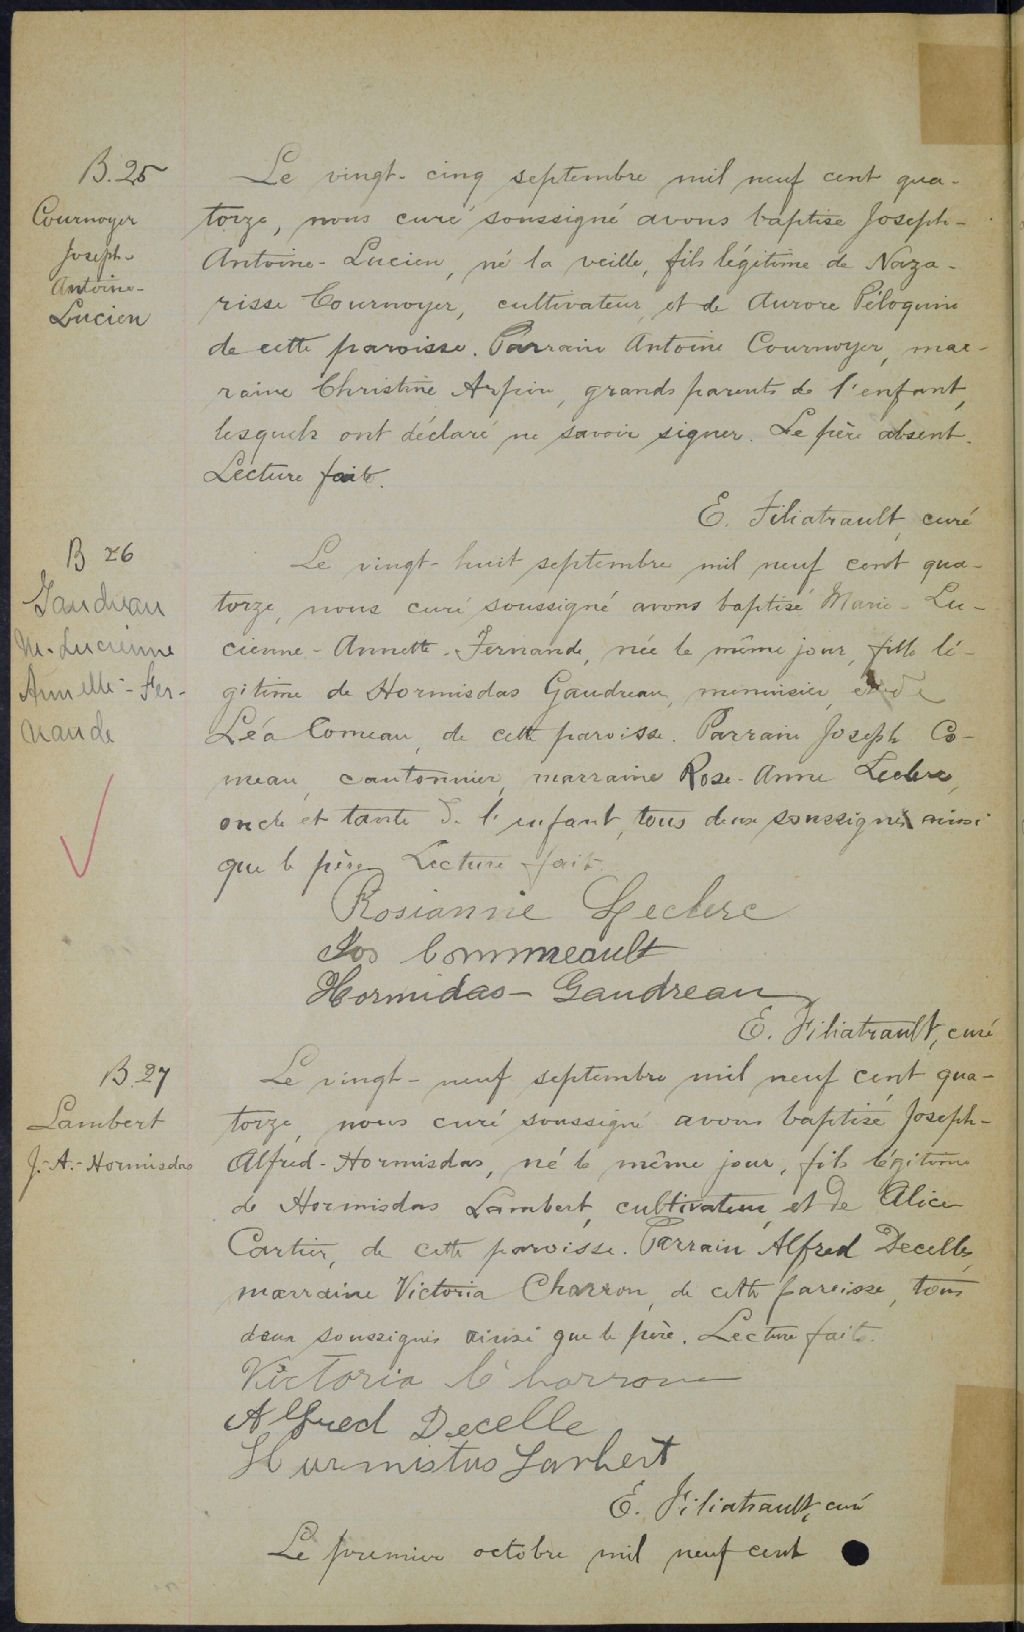 B. 25
Cournoyer
Joseph-
Antoine-
Lucien
Le vingt-cinq septembre mil neuf cent qua-
torze, nous curé soussigné avons baptisé Joseph-
Antoine-Lucien, né la veille, fils légitime de Naza-
risse Cournoyer, cultivateur, et de Aurore Péloquin
de cette paroisse. Parrain Antoine Cournoyer, mar-
raine Christine Arpin, grands parents de l'enfant,
lesquels ont déclaré ne savoir signer. Le père absent.
Lecture faite.
E. Filiatrault, curé
B 26
Gaudreau
M.-Lucienne
Annette-Fer-
nande
Le vingt-huit septembre mil neuf cent qua-
torze, nous curé soussigné avons baptisé Marie-Lu-
cienne-Annette-Fernande, née le même jour, fille lé-
gitime de Hormisdas Gaudreau, menuisier, et de
Léa Comeau, de cette paroisse. Parrain Joseph Co-
meau, cantonnier, marraine Rose-Anna Leclerc,
oncle et tante de l'enfant, tous deux soussignés ainsi
que le père. Lecture faite.
Rosianne Leclerc
Jos Commeault
Hormidas-Gaudreau
E. Filiatrault, curé
B. 27
Lambert
J.-A.-Hormisdas
Le vingt-neuf septembre mil neuf cent qua-
torze, nous curé soussigné avons baptisé Joseph-
Alfred-Hormisdas, né le même jour, fils légitime
de Hormisdas Lambert, cultivateur, et de Alice
Cartier, de cette paroisse. Parrain Alfred Decelles,
marraine Victoria Charron, de cette paroisse, tous
deux soussignés ainsi que le père. Lecture faite.
Victoria Charron
Alfred Decelle
Hurmistus Lanbert
E. Filiatrault, curé
Le premier octobre mil neuf cent